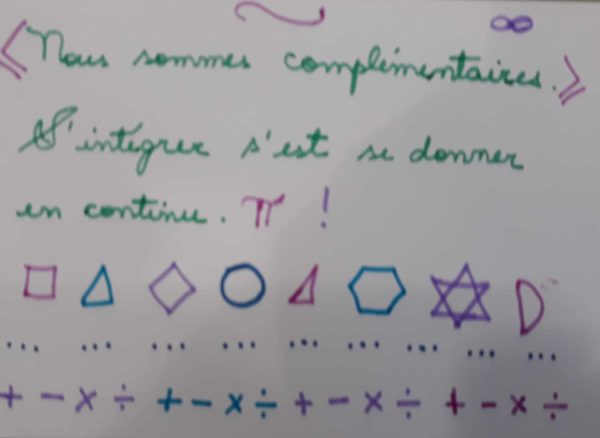 ∞
« Nous sommes complémentaires. »
S'intégrer s'est se donner
en continu. π !
... ... ... ... ... ... ... ... ...
+ - × ÷ + - × ÷ + - × ÷ + - × ÷